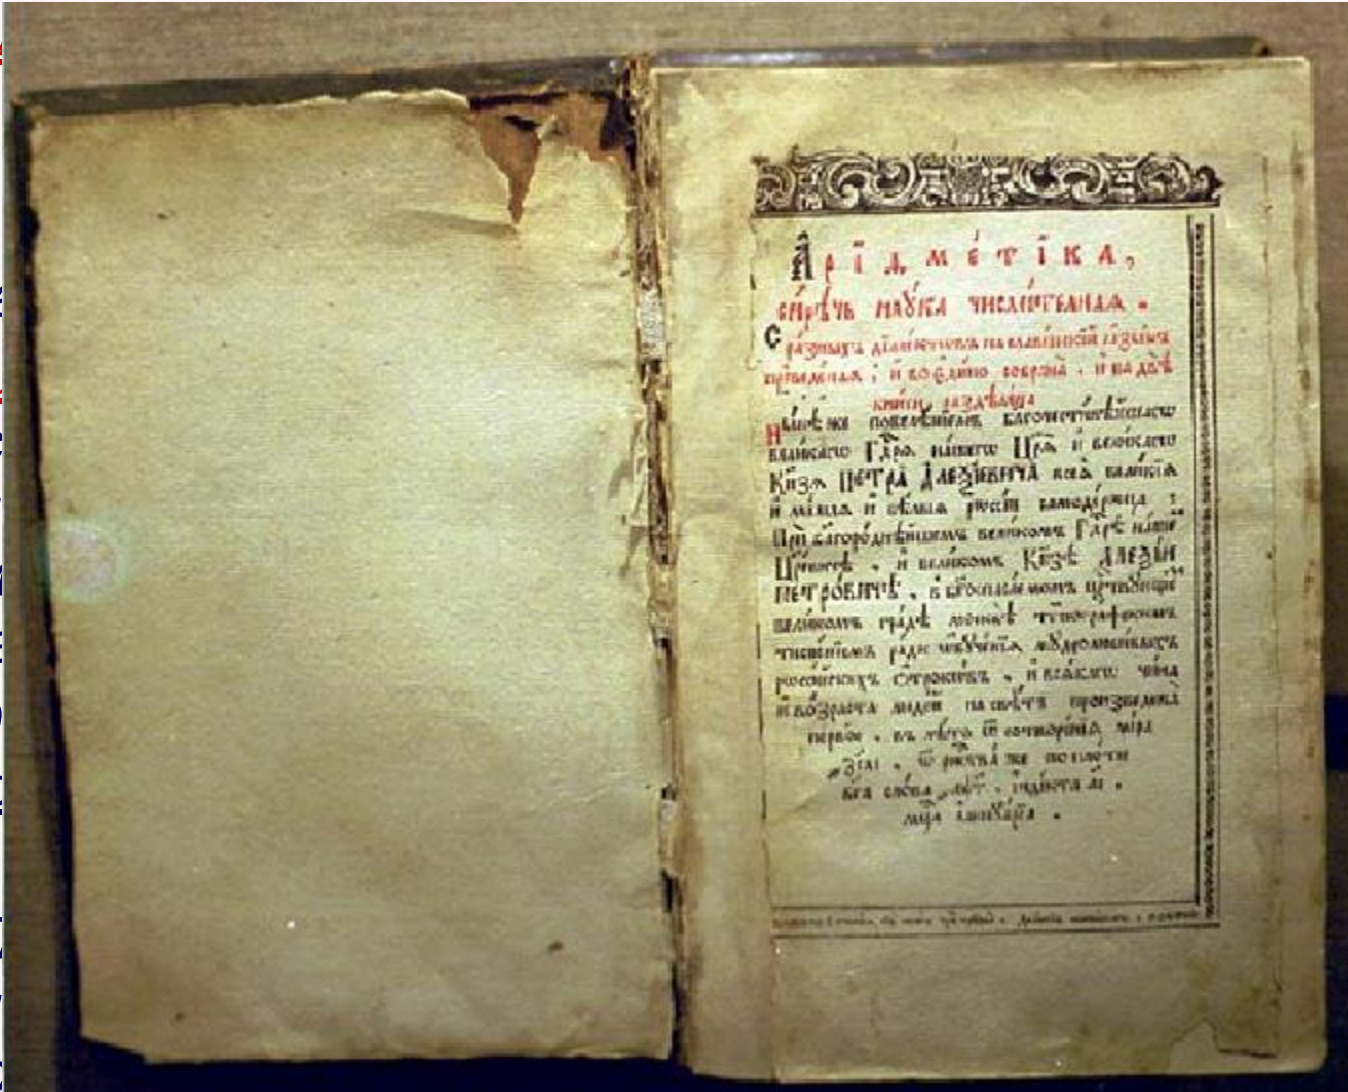 Арїѳме́тїка,
си́рѣчь наꙋ́ка числи́телнаѧ.
С ра́зныхъ дїале́ктѡвъ на славе́нскїй ѧ҆зы́къ
преведе́наѧ, и҆ во є҆ди́но собрана̀, и҆ на двѣ̀
кни̑ги раздѣлена̀
Нн҃ѣ же повелѣ́нїемъ благочести́вѣйшагѡ
вели́кагѡ Гдⷭ҇рѧ на́шегѡ Цр҃ѧ̀ и҆ вели́кагѡ
Кн҃зѧ ПЕТРА̀ АЛЕѮІ́ЕВИЧА всеѧ̀ вели́кїѧ
и҆ ма́лыѧ и҆ бѣ́лыѧ рѡссі́и самоде́ржца:
Прѝ благоро́днѣйшемъ вели́комъ Гдⷭ҇рѣ на́шемъ
Цр҃е́вичѣ, и҆ вели́комъ Кн҃зѣ АЛЕѮІ́И
ПЕТРО́ВИЧѢ, в бг҃оспаса́емомъ црⷭ҇твующемъ
вели́комъ гра́дѣ москвѣ̀ тѷпогра́фскимъ
тисне́нїемъ ра́ди ѡ҆бꙋче́нїѧ мꙋдролюби́выхъ
рѡссі́йскихъ ѻ҆́трокѡвъ, и҆ всѧ́кагѡ чи́на
и҆ во́зраста люде́й на свѣ́тъ произведена̀
пе́рвое, въ лѣ́то ѿ сотворе́нїѧ мі́ра
҂зсаі, ѿ ржⷭ҇тва́ же по пло́ти
бг҃а сло́ва ҂аѱг, і҆ндї́кта аі,
мцⷭ҇а і҆аннꙋа́рїа.